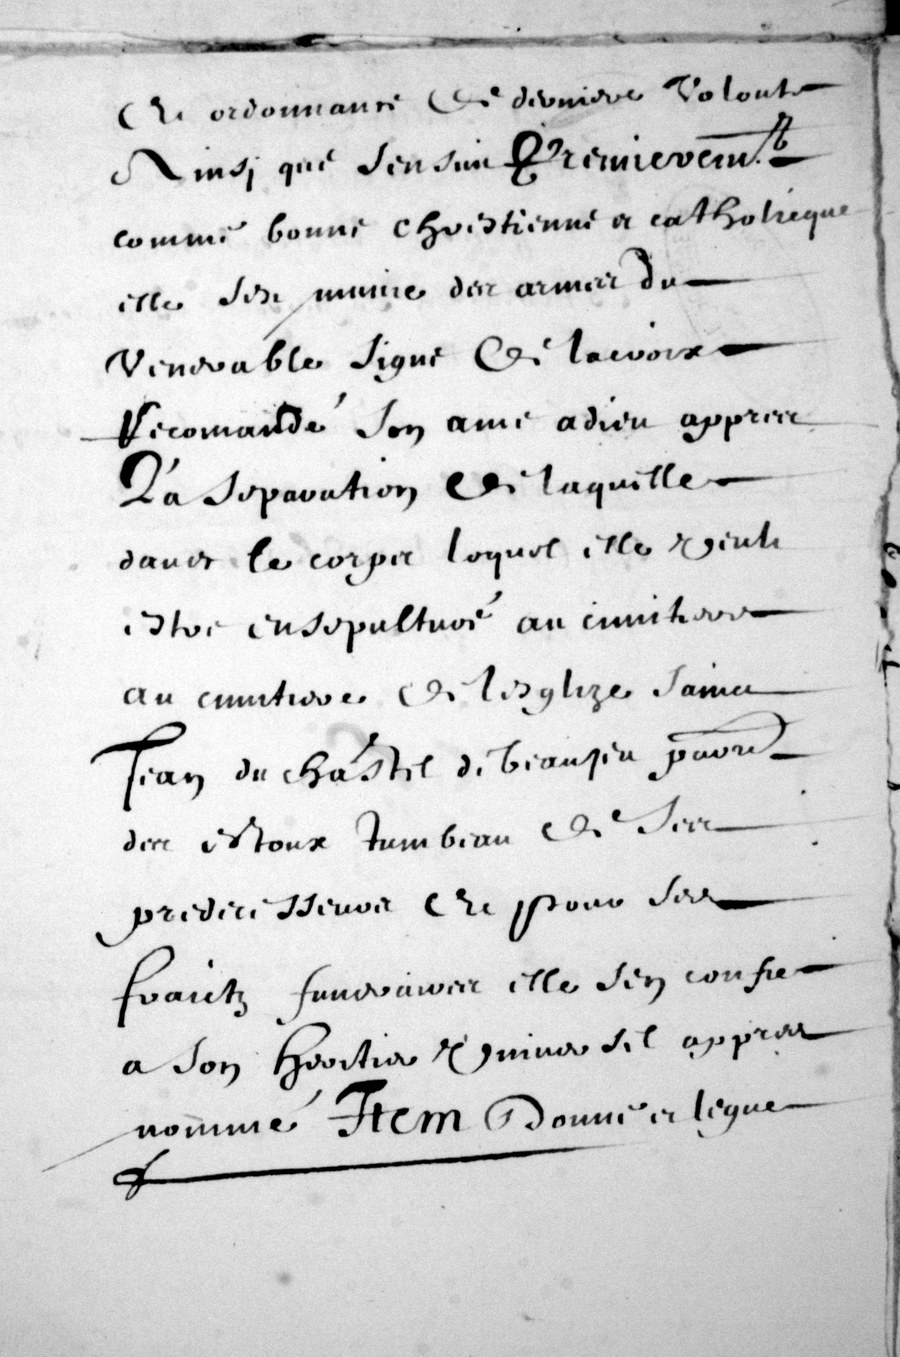 Et ordonnance de derniere volonte
Ainsj que sensuin Premierem.t
comme bonne chrestienne et catholicque
elle sest munie des armes du
venerable signe de lacroix
Recomandé son ame adieu appres
La separation de laquelle
daves le corps lequel elle veult
estre ensepulturé au cimitiere
au cimitiere de lesglize sainct
Jean du chastel de beaujeu
des estoux tumbeau de ses
predecesseurs Et pour ses
fraictz funeraires elle sen confie
a son heritier Vniversel appres
nommé Item Donne et legue